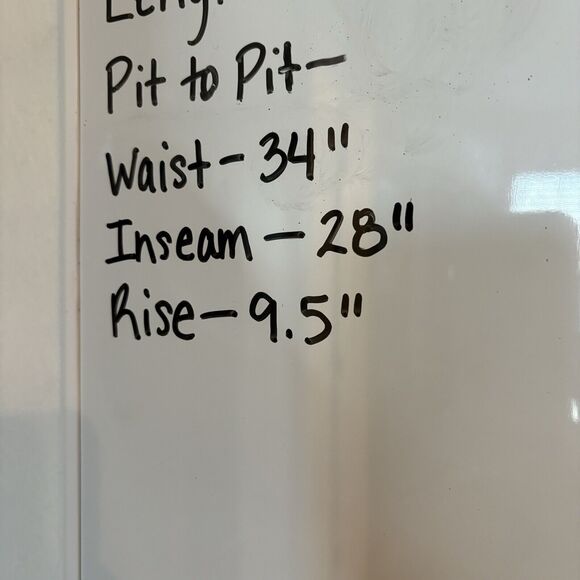 Pit to Pit-
Waist- 34"
Inseam - 28"
Rise- 9.5"